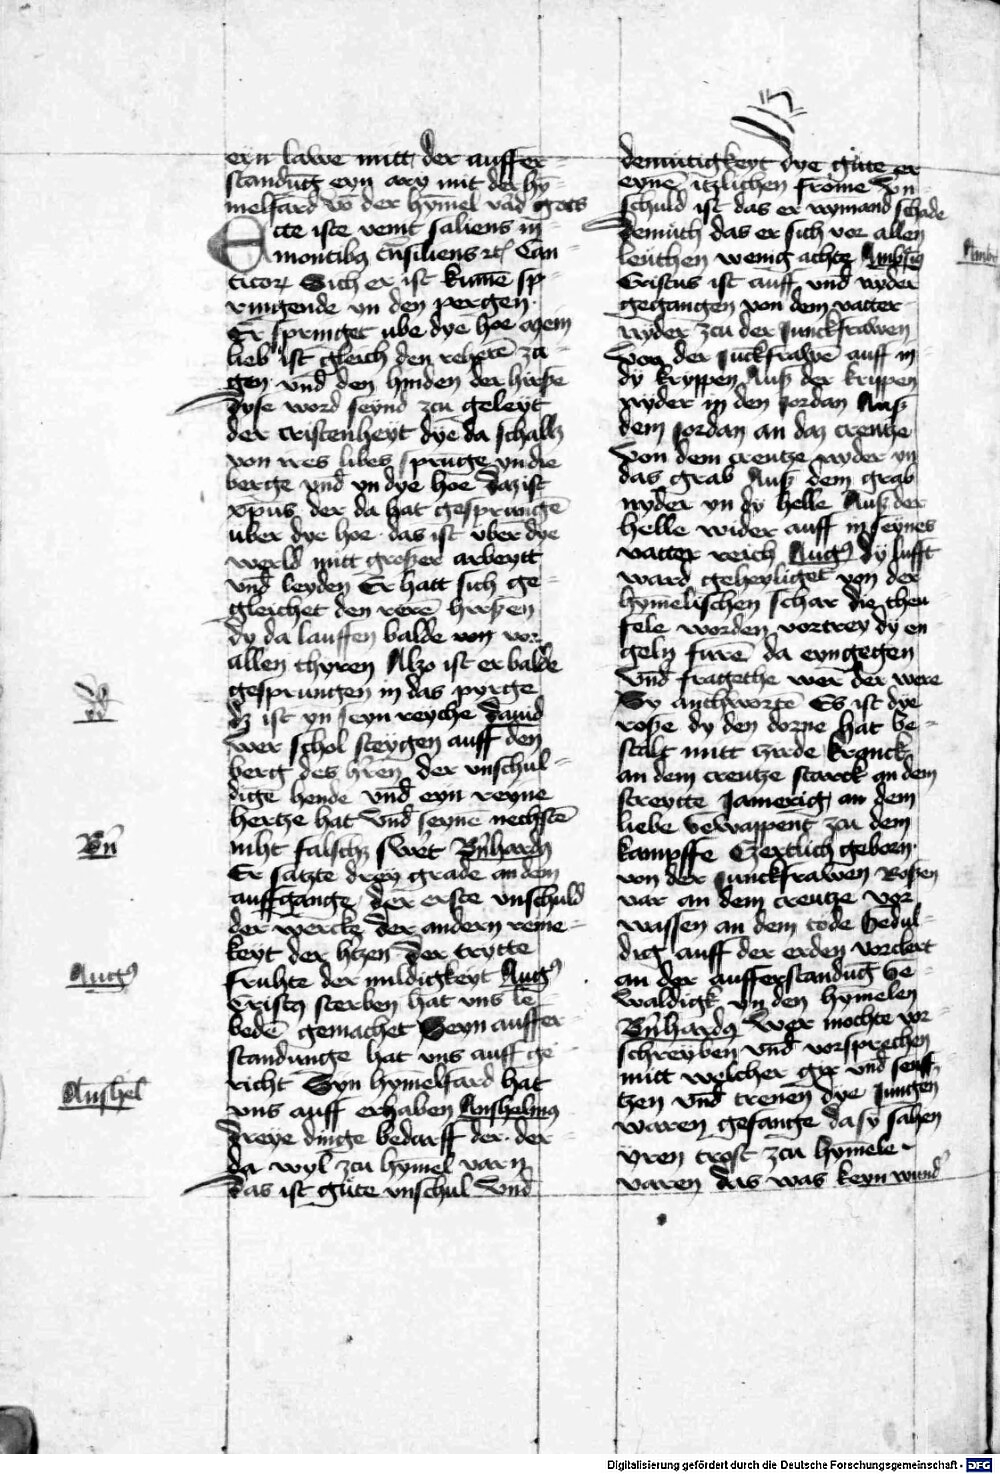 eyn lawe mitt der auffer-
standūg eyn ary mit der hȳ-
melfard vō der hymel vād gots
Ecce iste venit saliens in
montibꝫ tnsiliens ꝛc̄ Can
ticoꝝ Sich er ist kumē sp
ringende yn den pergen
Er springet vbe dye hoe meyn
lieb ist gleich den reheren zā-
gen vnd̄ den hinden der hirße
Dyse word seynd zcu geleyt
der cristenheyt dye da schaltz
von irēs libes sprunge yn die
berge vnd̄ yn dye hoe Daz ist
xpūs der da hat gesprungē
uber dye hoe das ist vber dye
werld mitt großer arbeytt
vnd̄ leyden Er hatt sich ge-
gleichet den rerē hirßen
dy da lauffen balde von vor
allen thyren Alzo ist er balde
gesprungen in das pyrge
dz ist yn seyn reyche Dauid
Wer schol steygen auff den
berg des hrē̄n der vnschul-
dige hende vnd̄ eyn reyne
hertze hat vnd̄ seyne nechstē
niht falschz swert Bn̄hardꝰ
Er satzte drey grade an dem
auffgange der erste vnschuld
der wercke der andern reine-
keyt der htzen Der trytte
fruhte der mildigkeyt Augꝰ
Cristꝰ sterben hat vns le
bedē gemachet Seyn auffer-
standunge hat vns auff ge-
richt Syn hymelfard hat
vns auff erhaben Anshelmꝰ
Dreye dinge bedarff der der-
da wyl zcu hymel varn
Das ist gute vnschul Vnd̄
dd
Bn̄
Augꝰ
Anshel
demutigkeyt Dye gute er
eynē itzlichen frome Vn-
schuld ist das er nymand schade
Demuth das er sich vor allen
leuthen wenig achte Ambsiꝰ
Cristus ist auff vnd̄ nyder
gegangen von dem vatter
nyder zcu der Junckfrawen
Von der Jūckfrawē auff in
dy kryppen Auß der krippen
nyder in den Jordan Auß
dem Jordan an daz creutze
Von dem creutze nyder yn
das grab Auß dem grab
nyder yn dy helle Auß der
helle wider auff in seynes
vatter reich Augꝰ dy lufft
ward geheyliget von der
hymelischen schar die theu
fele worden vortrey dy en
geln furē da eyngegen
Vnd̄ fragethe wer der were
Sy anthwortē Es ist dye
roße dy den dorne hat be-
stalt mitt Kranck
an dem creutze starck an dem
streytte Jamerig an dem
liebe vewappent zcu dem
kampffe Czertlich geborn
von der Junckfrawen Roßen
var an dem creutze vor
wassen an dem tode Gedul-
dig auff der erden vorclert
an der aufferstandūg Ge-
waldigk yn den hymelen
Bn̄hardꝰ Wer mochte vor-
schreyben vnd̄ vorsprechen
mitt welcher gir vnd̄ seufft
tzen vnd̄ trenen dye Jungen
waren gefange da sy sahen
yren trost zcu hymele
varen Das was keyn wund̾
Ambr